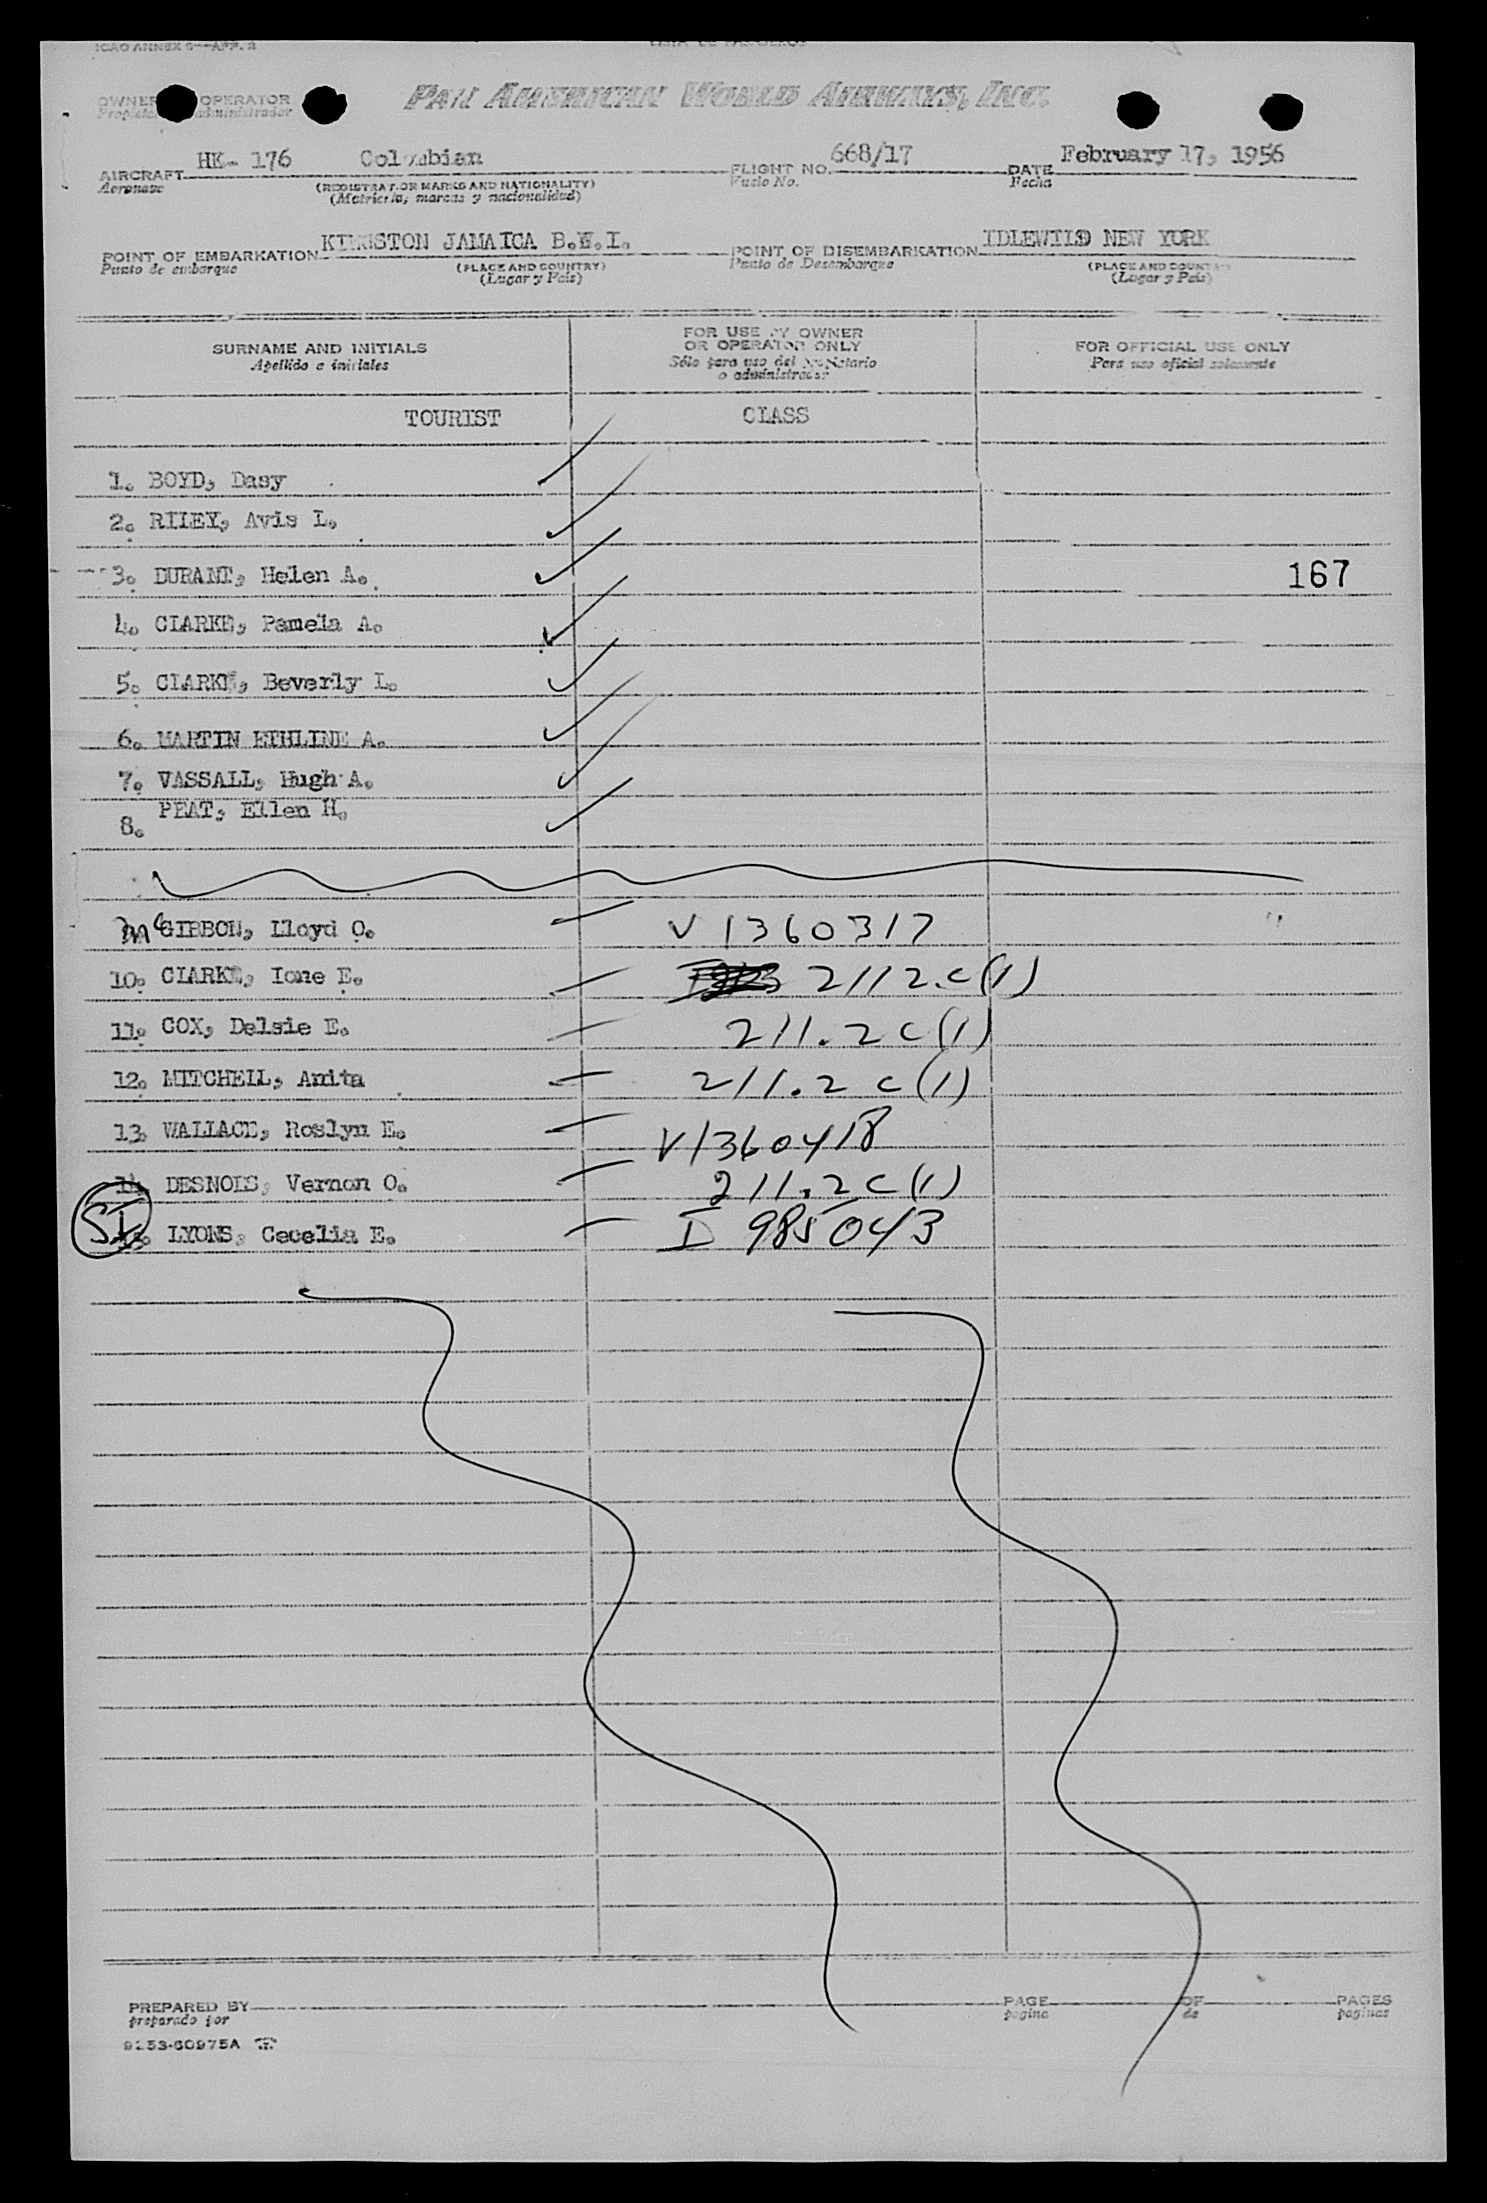 ICAO ANNEX 9—APP. 3
OWNER OPERATOR
administrador
PAN AMERICAN WORLD AIRWAYS, INC.
AIRCRAFT HK- 176 Colombian FLIGHT NO. 668/17 DATE February 17, 1956
Aeronave (REGISTRATION MARKS AND NATIONALITY) Vuelo No. Fecha
(Matrícula, marcas y nacionalidad)
POINT OF EMBARKATION KINGSTON JAMAICA B.W.I. POINT OF DISEMBARKATION IDLEWILD NEW YORK
Punto de embarque (PLACE AND COUNTRY) Punto de Desembarque (PLACE AND COUNTRY)
(Lugar y País) (Lugar y País)
SURNAME AND INITIALS FOR USE BY OWNER OR OPERATOR ONLY FOR OFFICIAL USE ONLY
Apellido e iniciales Sólo para uso del propietario o administrador Para uso oficial solamente
TOURIST CLASS
1. BOYD, Dasy
2. RILEY, Avis L.
3. DURANT, Helen A. 167
4. CLARKE, Pamela A.
5. CLARKE, Beverly L.
6. MARTIN ETHLINE A.
7. VASSALL, Hugh A.
8. PEAT, Ellen H.
Mc GIBBON, Lloyd O. V 1360317
10. CLARKE, Ione E. 2112.c(1)
11. COX, Delsie E. 211.2 c(1)
12. MITCHELL, Anita 211.2 c(1)
13. WALLACE, Roslyn E. V1360418
14. DESNOES, Vernon O. 211.2 c(1)
SI LYONS, Cecelia E. I 985043
PREPARED BY PAGE OF PAGES
preparado por pagina de paginas
9153-60975A